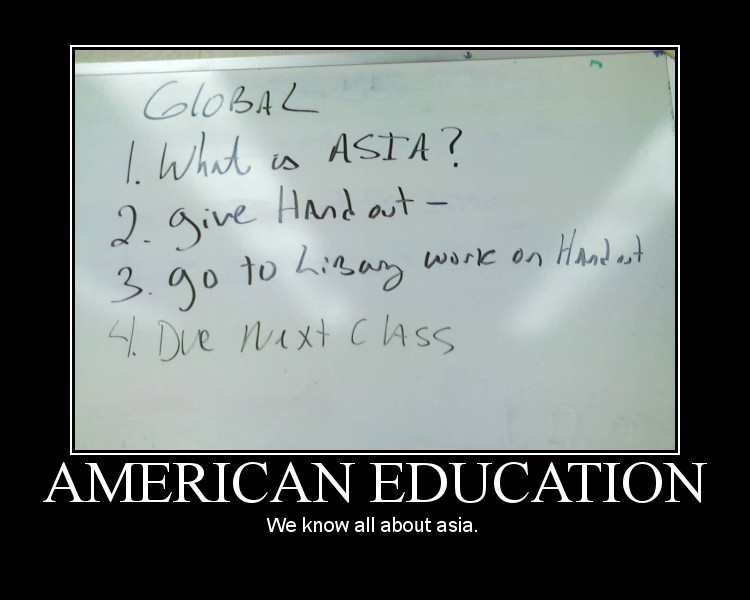 GLOBAL
1. What is ASIA?
2. give Handout -
3. go to Library work on Handout
4. Due Next Class
AMERICAN EDUCATION
We know all about asia.